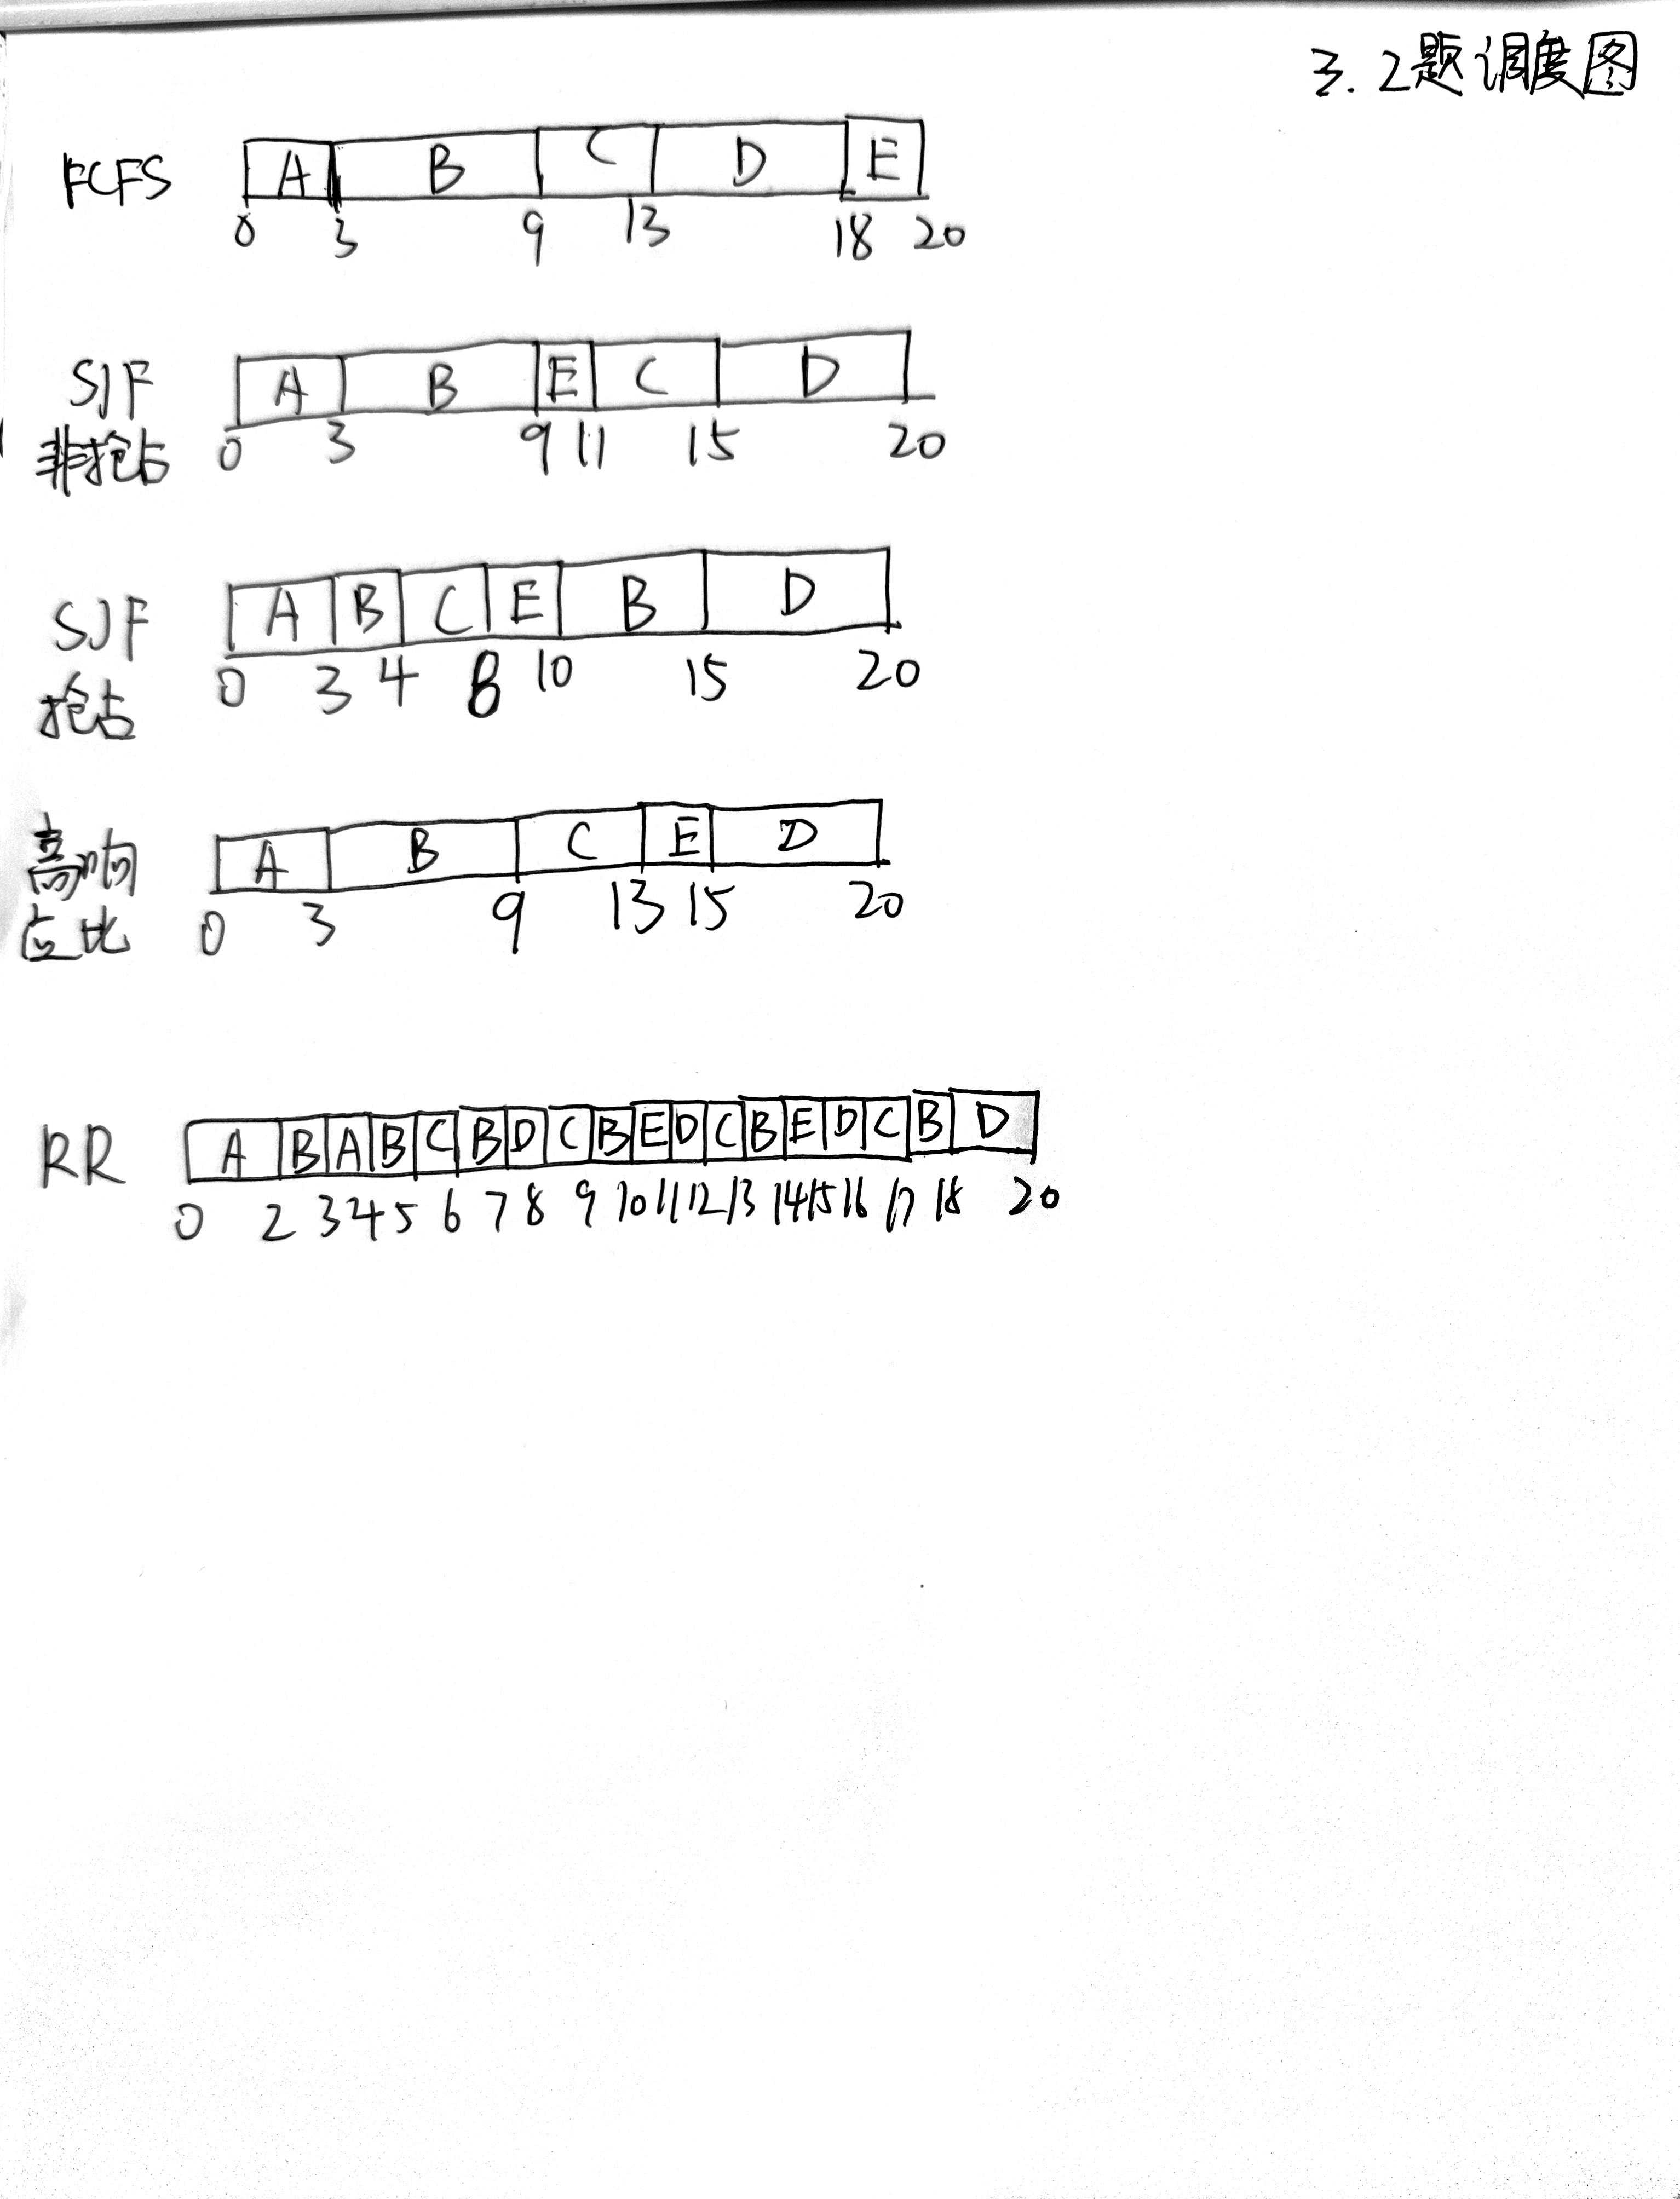 3.2题调度图
FCFS A B C D E
0 3 9 13 18 20
SJF A B E C D
非抢占 0 3 9 11 15 20
SJF A B C E B D
抢占 0 3 4 8 10 15 20
高响 A B C E D
应比 0 3 9 13 15 20
RR A B A B C B D C B E D C B E D C B D
0 2 3 4 5 6 7 8 9 10 11 12 13 14 15 16 17 18 20